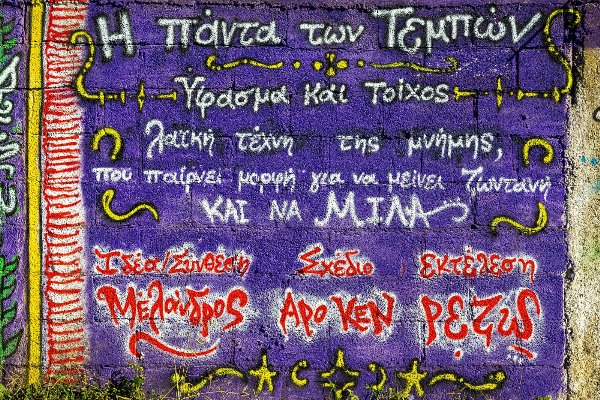 Η ΠάΝΤΑ των ΤΕΜΠών
Υφασμα και τοίχος
λαϊκή τέχνη της μνήμης,
που παίρνει μορφή για να μείνει ζωντανή
ΚΑΙ ΝΑ ΜΙΛΑ
Ιδέα/Σύνθεση Σχέδιο εκτέλεση
Μέλανδρος ΑΡΟ ΚΕΝ ΡΕΖΙΣ